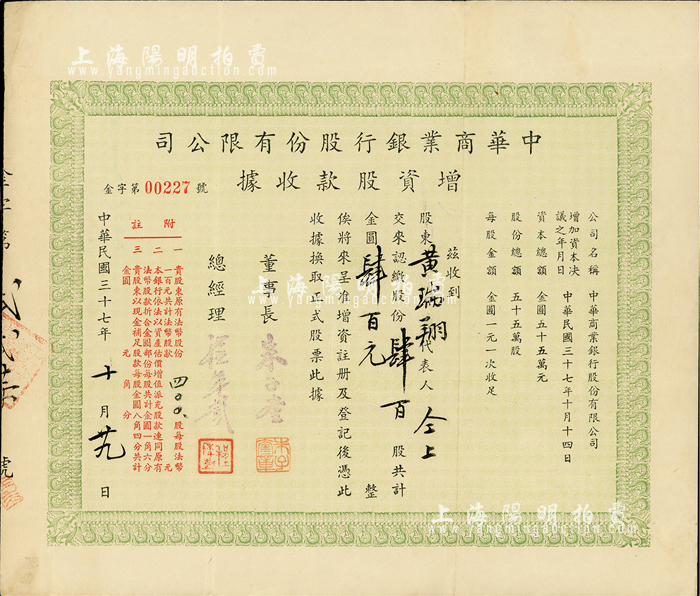 上海陽明拍賣
www.yangmingauction.com
中華商業銀行股份有限公司
增資股款收據
金字第00227號
公司名稱 中華商業銀行股份有限公司
增加資本决議之年月日 中華民國三十七年十月十四日
資本總額 金圓五十五萬元
股份總額 五十五萬股
每股金額 金圓一元一次收足
茲收到
股東黄瑞翔代表人仝上
交來認繳股份肆百股共計
金圓肆百元整
俟將來呈准增資註册及登記後憑此
收據換取正式股票此據
董事長
總經理
附註
一 貴股東原有法幣股份四〇〇股每股法幣
一百元共計法幣股款 元
二 本銀行依法以資產估價增值派充股款連同原有
法幣股款折合金圓部份每股共計金圓一角六分
三 貴股東以現金補足股款每股金圓八角四分共計
金圓 元 角 分
中華民國三十七年十月廿九日
號
上海陽明拍賣
www.yangmingauction.com